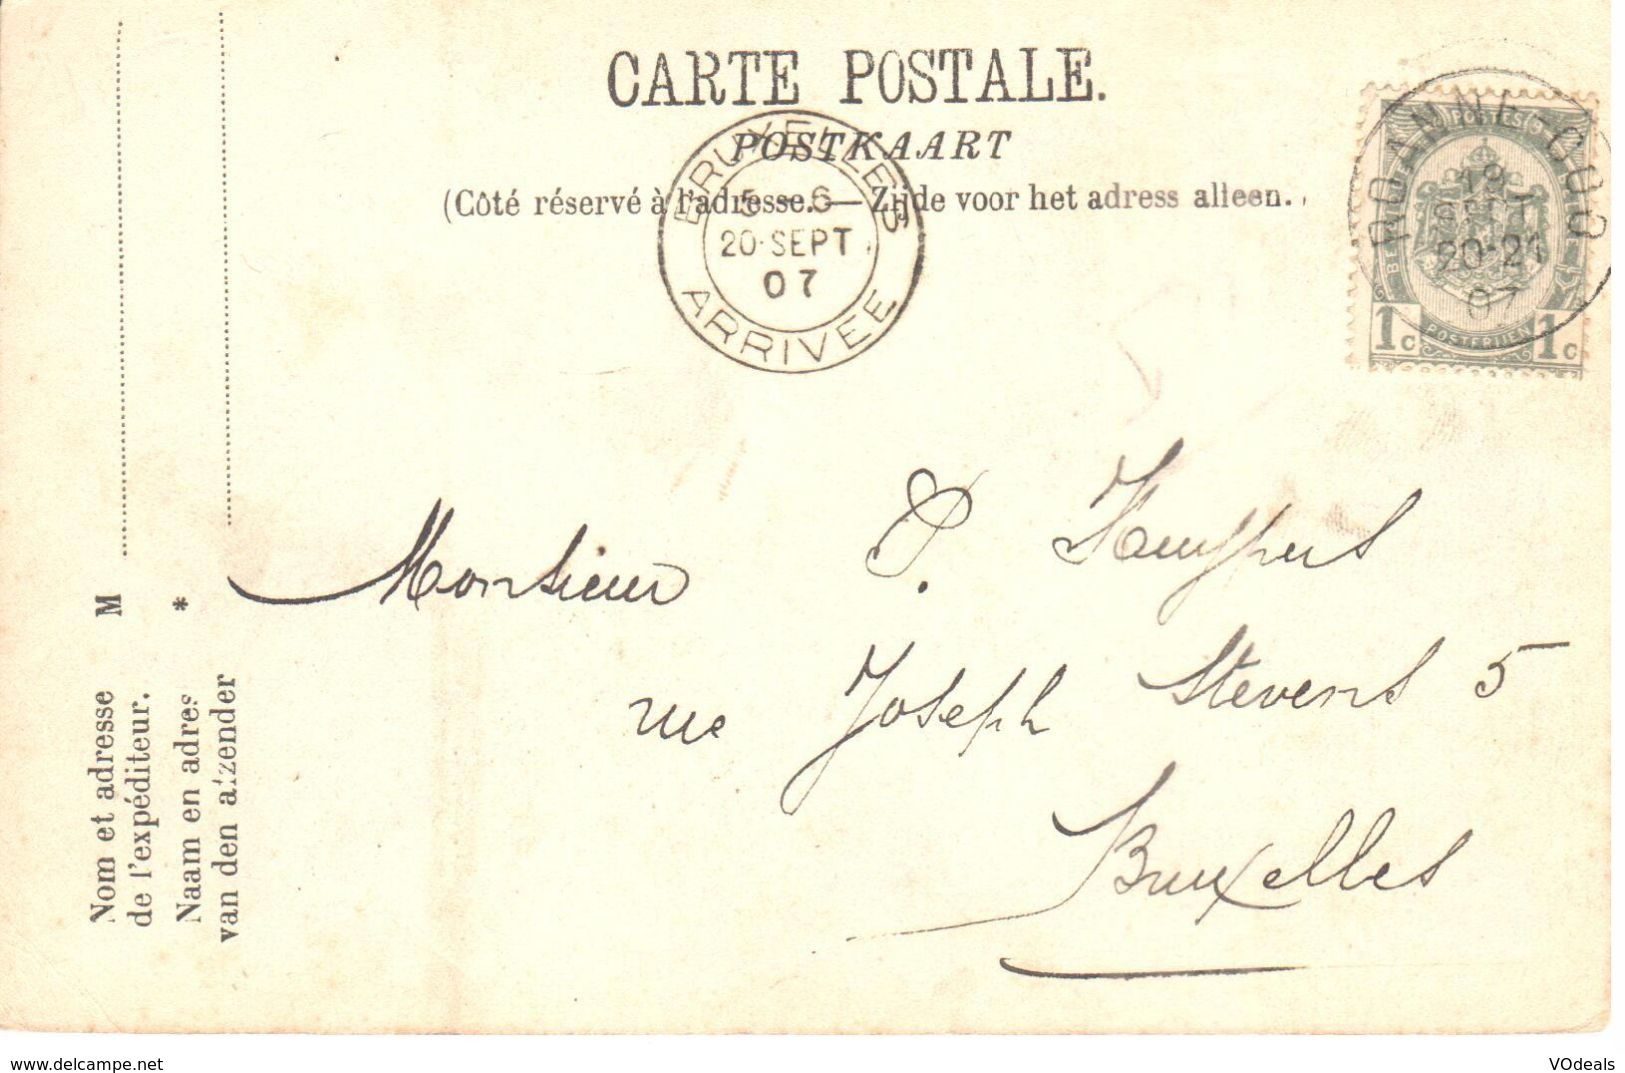 CARTE POSTALE.
POSTKAART
(Côté réservé à l'adresse. — Zijde voor het adress alleen.
BRUXELLES
5-6
20·SEPT
07
ARRIVEE
ROANNE-COO
19
SEPT
20-21
07
POSTES
BE
1c
POSTERIJEN
1c
Monsieur
rue Joseph Stevens 5
Bruxelles
M
Nom et adresse
de l'expéditeur.
*
Naam en adres
van den afzender
www.delcampe.net
VOdeals